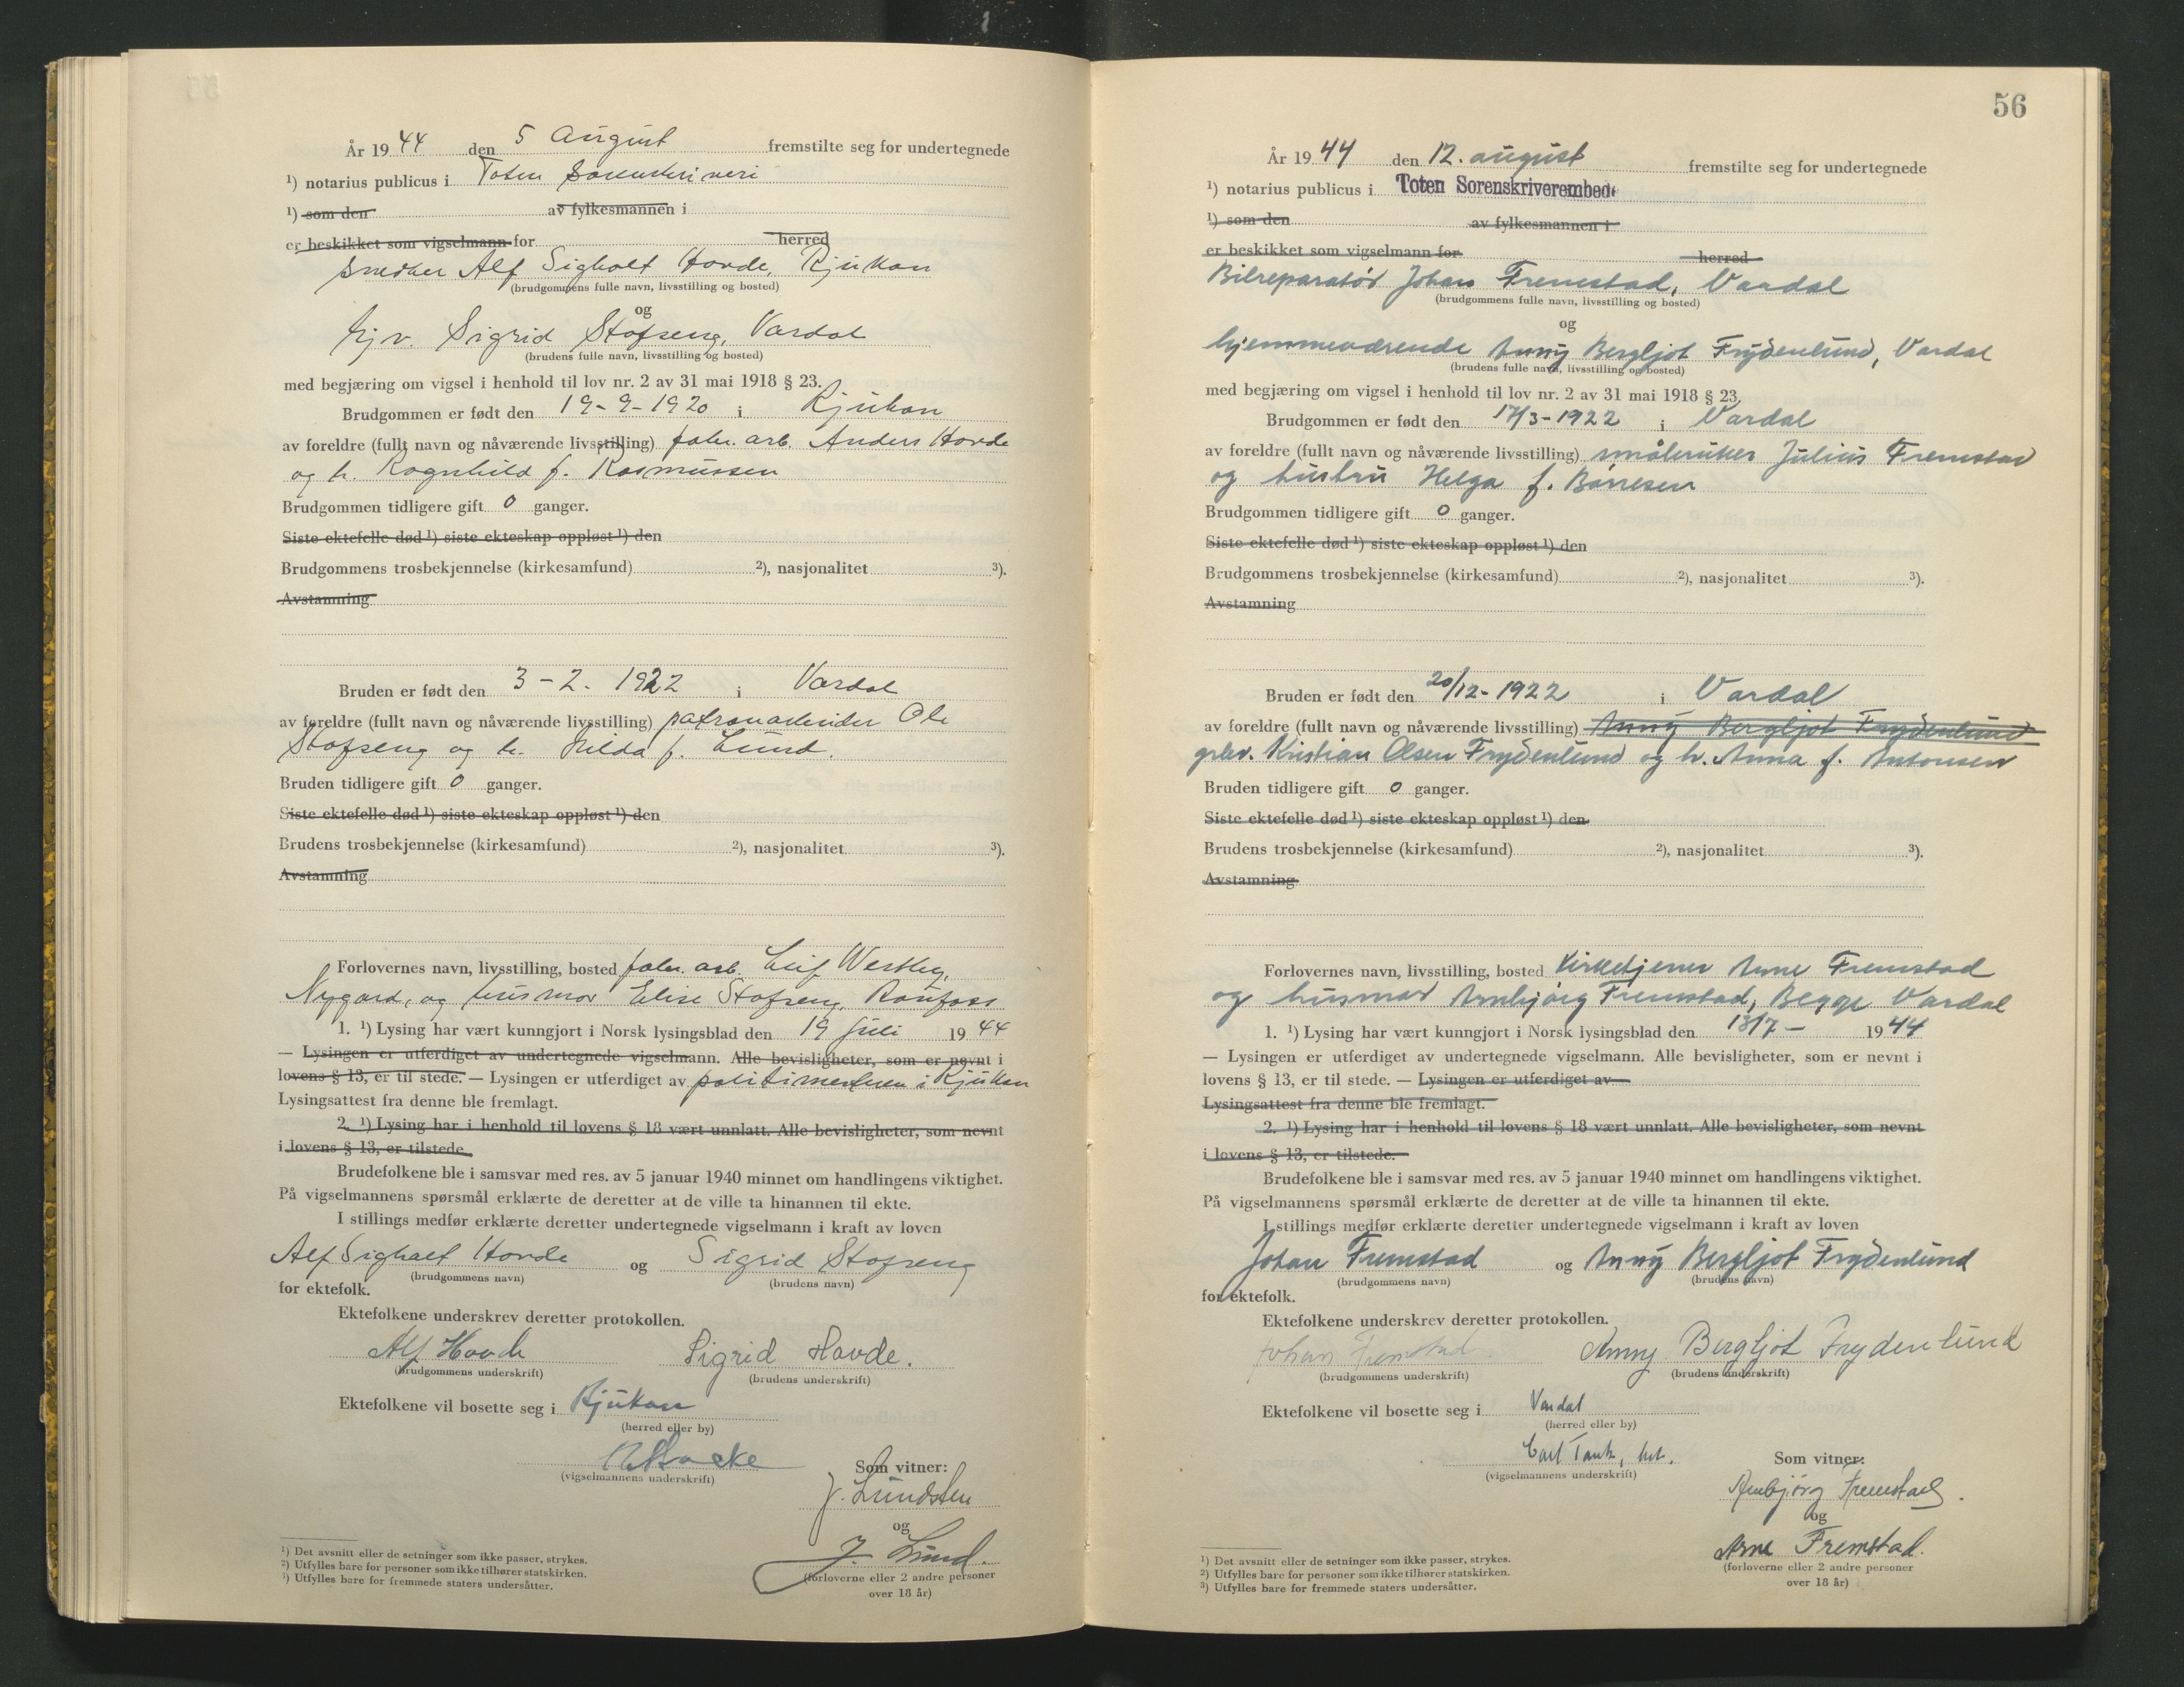 År 1944 den 5 August fremstilte seg for undertegnede
¹) notarius publicus i Toten Sorenskriveri
¹) som den av fylkesmannen i
er beskikket som vigselmann for herred
snedker Alf Sighalt Hovde, Rjukan
(brudgommens fulle navn, livsstilling og bosted)
og
hjv. Sigrid Stofseng, Vardal
(brudens fulle navn, livsstilling og bosted)
med begjæring om vigsel i henhold til lov nr. 2 av 31 mai 1918 § 23.
Brudgommen er født den 19-9-1920 i Rjukan
av foreldre (fullt navn og nåværende livsstilling) fabr. arb. Anders Hovde
og h. Ragnhild f. Rasmussen
Brudgommen tidligere gift 0 ganger.
Siste ektefelle død ¹) siste ekteskap oppløst ¹) den
Brudgommens trosbekjennelse (kirkesamfund) ²), nasjonalitet ³).
Avstamning
Bruden er født den 3-2-1922 i Vardal
av foreldre (fullt navn og nåværende livsstilling) patronarbeider Ole
Stofseng og h. Hilda f. Lund.
Bruden tidligere gift 0 ganger.
Siste ektefelle død ¹) siste ekteskap oppløst ¹) den
Brudens trosbekjennelse (kirkesamfund) ²), nasjonalitet ³).
Avstamning
Forlovernes navn, livsstilling, bosted fabr. arb. Leif Westby,
Nygard, og husmor Elise Stofseng, Raufoss
1. ¹) Lysing har vært kunngjort i Norsk lysingsblad den 19 juli 1944
— Lysingen er utferdiget av undertegnede vigselmann. Alle bevisligheter, som er nevnt i
lovens § 13, er til stede. — Lysingen er utferdiget av politimesteren i Rjukan
Lysingsattest fra denne ble fremlagt.
2. ¹) Lysing har i henhold til lovens § 18 vært unnlatt. Alle bevisligheter, som nevnt
i lovens § 13, er tilstede.
Brudefolkene ble i samsvar med res. av 5 januar 1940 minnet om handlingens viktighet.
På vigselmannens spørsmål erklærte de deretter at de ville ta hinannen til ekte.
I stillings medfør erklærte deretter undertegnede vigselmann i kraft av loven
Alf Sighalt Hovde og Sigrid Stofseng
(brudgommens navn) (brudens navn)
for ektefolk.
Ektefolkene underskrev deretter protokollen.
Alf Hovde Sigrid Hovde.
(brudgommens underskrift) (brudens underskrift)
Ektefolkene vil bosette seg i Rjukan
(herred eller by)
(vigselmannens underskrift)
Som vitner:
J. Lundsten
og
J. Lund.
(forloverne eller 2 andre personer
over 18 år)
¹) Det avsnitt eller de setninger som ikke passer, strykes.
²) Utfylles bare for personer som ikke tilhører statskirken.
³) Utfylles bare for fremmede staters undersåtter.
56
År 1944 den 12. august fremstilte seg for undertegnede
¹) notarius publicus i Toten Sorenskriverembede
¹) som den av fylkesmannen i
er beskikket som vigselmann for herred
Bilreparatør Johan Fremstad, Vardal
(brudgommens fulle navn, livsstilling og bosted)
og
hjemmeværende Anny Bergljot Frydenlund, Vardal
(brudens fulle navn, livsstilling og bosted)
med begjæring om vigsel i henhold til lov nr. 2 av 31 mai 1918 § 23.
Brudgommen er født den 17/3-1922 i Vardal
av foreldre (fullt navn og nåværende livsstilling) småbruker Julius Fremstad
og hustru Helga f. Børresen
Brudgommen tidligere gift 0 ganger.
Siste ektefelle død ¹) siste ekteskap oppløst ¹) den
Brudgommens trosbekjennelse (kirkesamfund) ²), nasjonalitet ³).
Avstamning
Bruden er født den 20/12-1922 i Vardal
av foreldre (fullt navn og nåværende livsstilling) Anny Bergljot Frydenlund
Kristian Olsen Frydenlund og h. Anna f. Antonsen
Bruden tidligere gift 0 ganger.
Siste ektefelle død ¹) siste ekteskap oppløst ¹) den
Brudens trosbekjennelse (kirkesamfund) ²), nasjonalitet ³).
Avstamning
Forlovernes navn, livsstilling, bosted Kirketjener Arne Fremstad
og husmor Annbjørg Fremstad, Begge Vardal
1. ¹) Lysing har vært kunngjort i Norsk lysingsblad den 18/7 - 1944
— Lysingen er utferdiget av undertegnede vigselmann. Alle bevisligheter, som er nevnt i
lovens § 13, er til stede. — Lysingen er utferdiget av
Lysingsattest fra denne ble fremlagt.
2. ¹) Lysing har i henhold til lovens § 18 vært unnlatt. Alle bevisligheter, som nevnt
i lovens § 13, er tilstede.
Brudefolkene ble i samsvar med res. av 5 januar 1940 minnet om handlingens viktighet.
På vigselmannens spørsmål erklærte de deretter at de ville ta hinannen til ekte.
I stillings medfør erklærte deretter undertegnede vigselmann i kraft av loven
Johan Fremstad og Anny Bergljot Frydenlund
(brudgommens navn) (brudens navn)
for ektefolk.
Ektefolkene underskrev deretter protokollen.
Johan Fremstad Anny Bergljot Frydenlund
(brudgommens underskrift) (brudens underskrift)
Ektefolkene vil bosette seg i Vardal
(herred eller by)
Carl Tank,
(vigselmannens underskrift)
Som vitner:
Annbjørg Fremstad.
og
Arne Fremstad.
(forloverne eller 2 andre personer
over 18 år)
¹) Det avsnitt eller de setninger som ikke passer, strykes.
²) Utfylles bare for personer som ikke tilhører statskirken.
³) Utfylles bare for fremmede staters undersåtter.